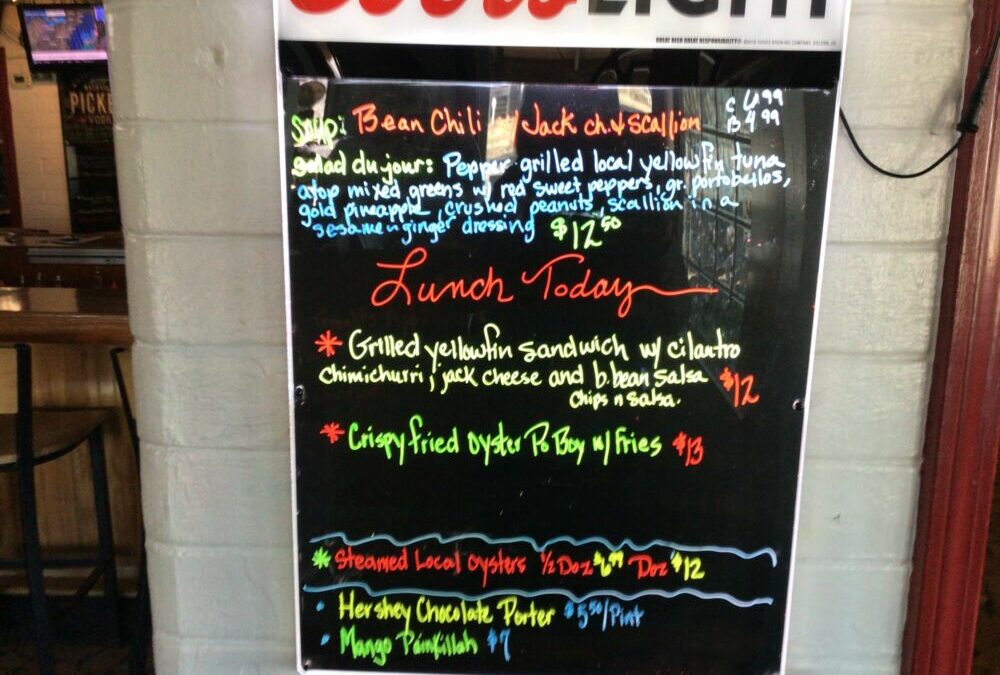 Coors LIGHT
GREAT BEER GREAT RESPONSIBILITY®
PICK
Soup: Bean Chili w/ Jack ch. & scallion
C 6.99
B 4.99
Salad du jour: Pepper grilled local yellowfin tuna
atop mixed greens w/ red sweet peppers, gr. portobellos,
gold pineapple, crushed peanuts, scallion in a
sesame n ginger dressing $12.50
Lunch Today
* Grilled yellowfin sandwich w/ cilantro
chimichurri, jack cheese and b.bean salsa $12
chips n salsa.
* Crispy fried oyster Po Boy w/ Fries $13
* Steamed Local oysters 1/2 Doz $6.99 Doz $12
• Hershey Chocolate Porter $5.50/Pint
• Mango Painkillah $7